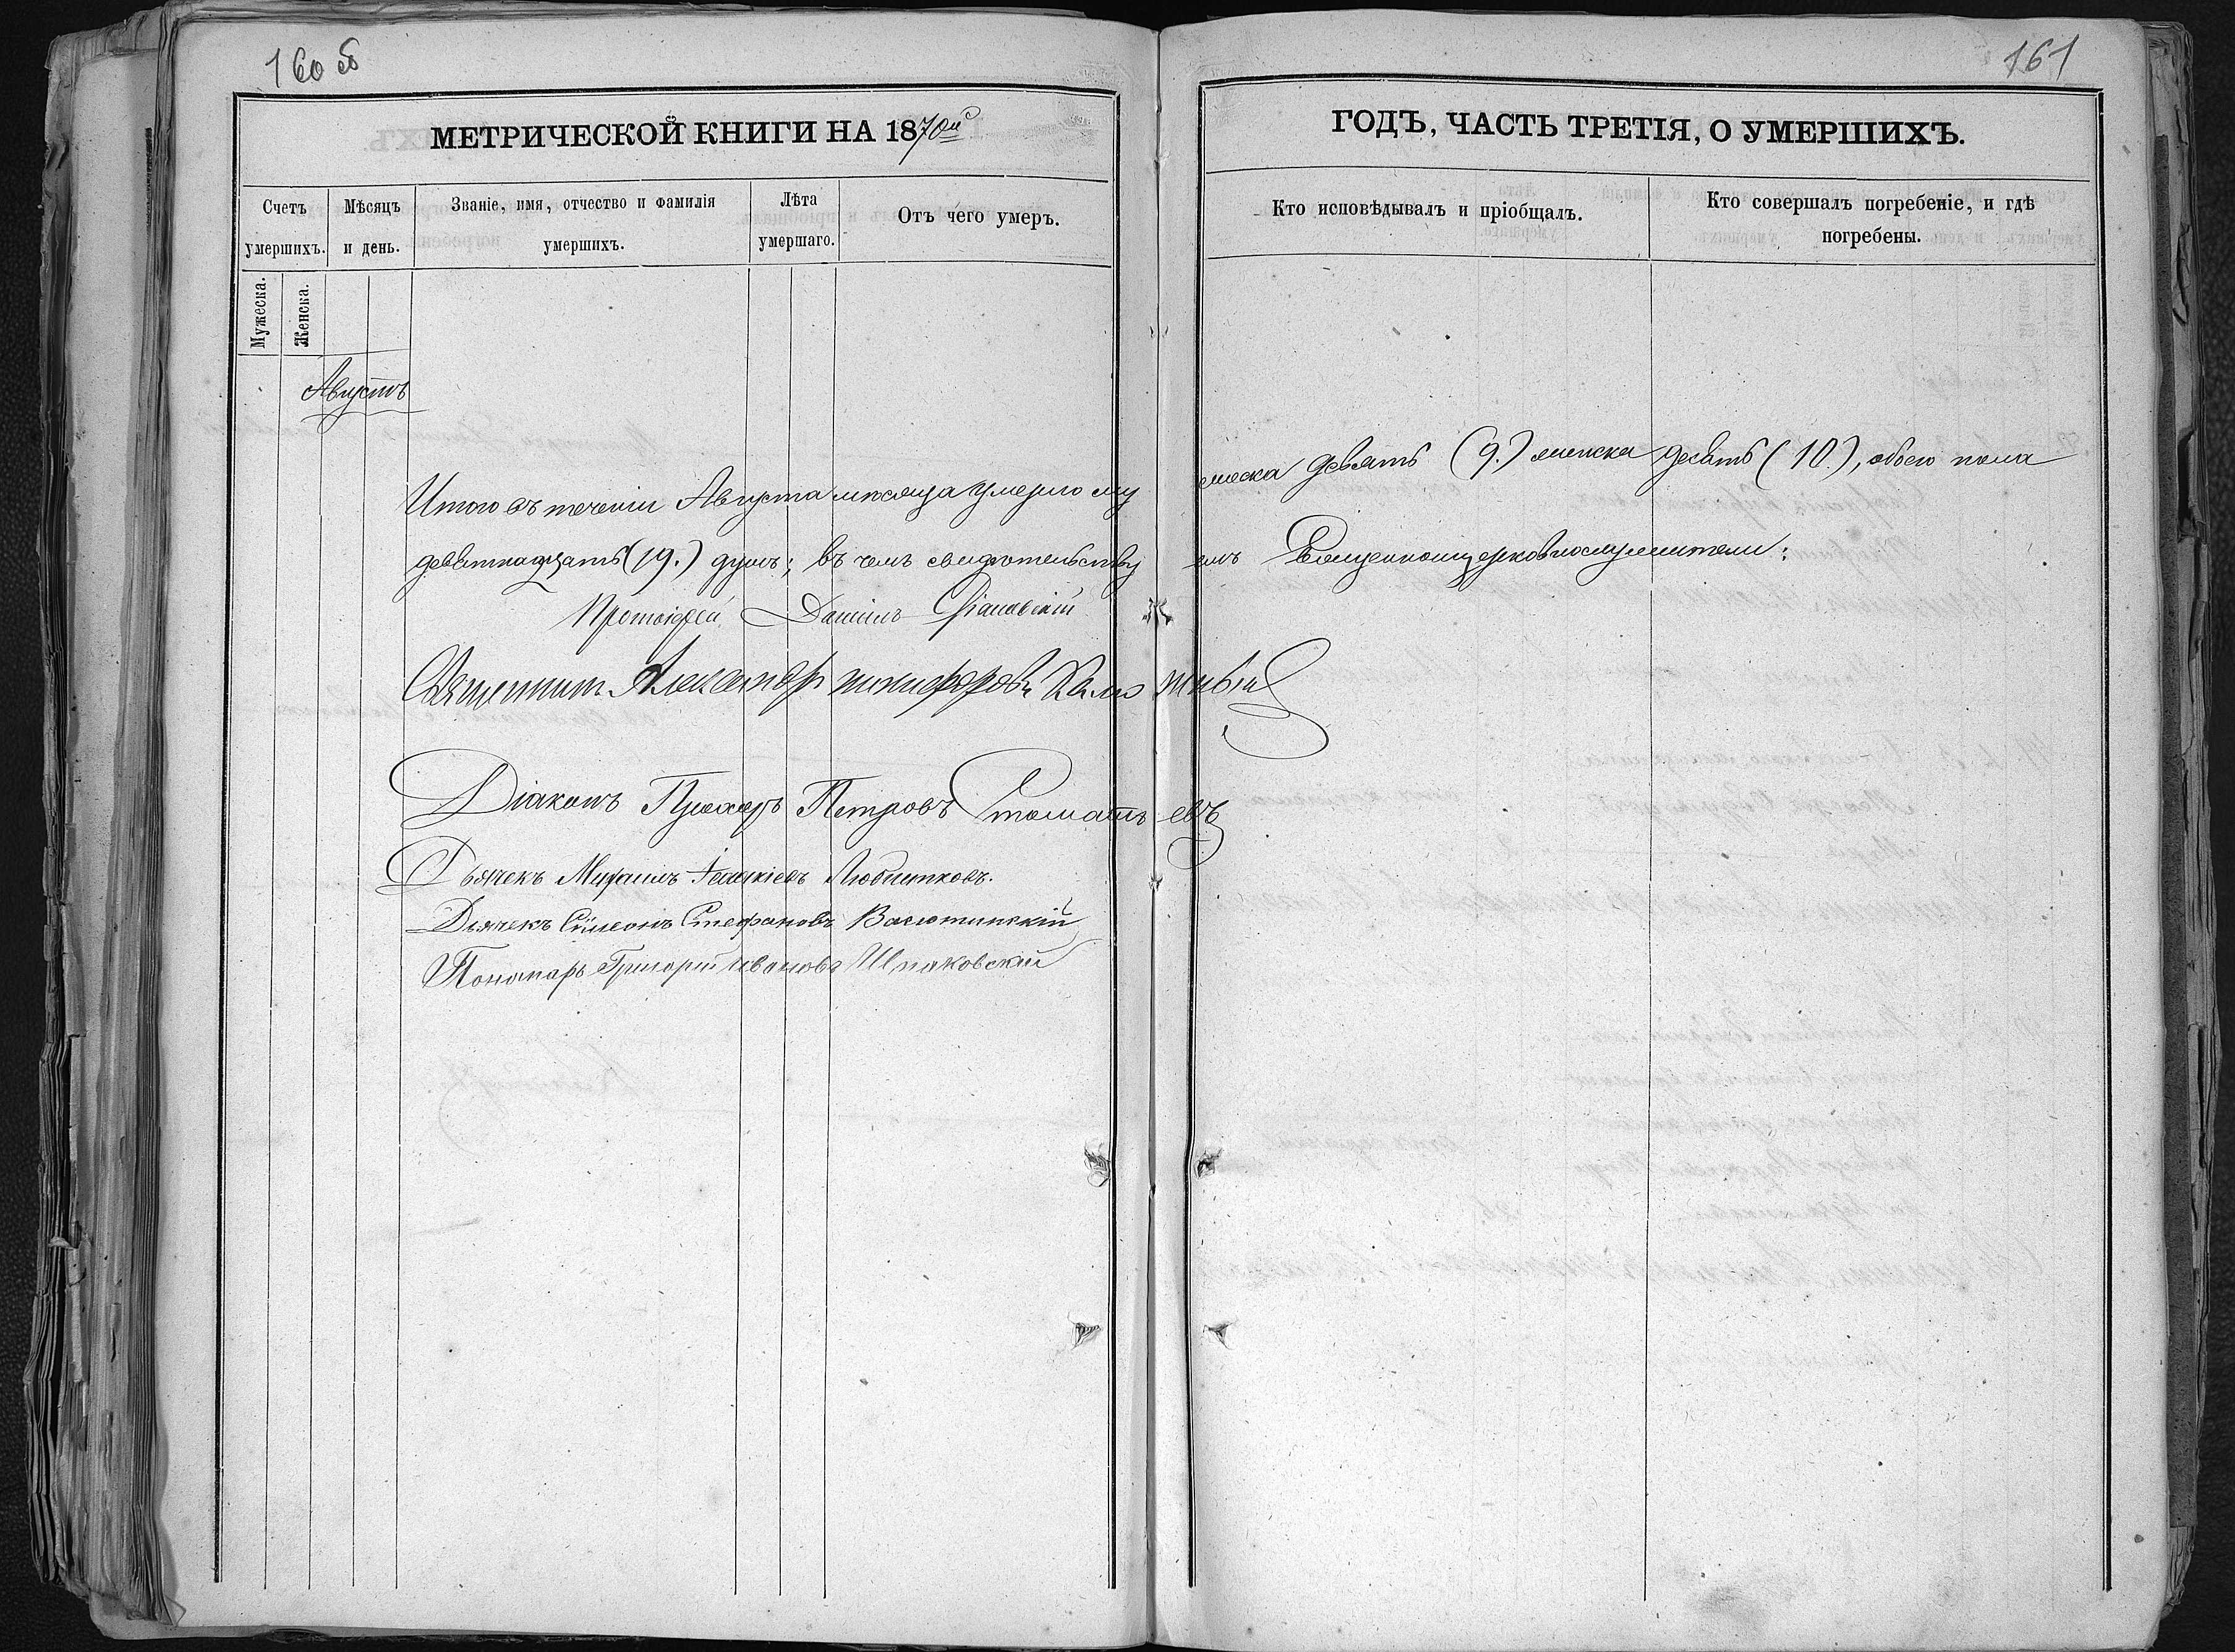 160 об
161
МЕТРИЧЕСКОЙ КНИГИ НА 1870й
ГОДЪ, ЧАСТЬ ТРЕТІЯ, О УМЕРШИХЪ.
Счетъ умершихъ.
Мѣсяцъ и день.
Званіе, имя, отчество и фамилія умершихъ.
Лѣта умершаго.
Отъ чего умеръ.
Кто исповѣдывалъ и пріобщалъ.
Кто совершалъ погребеніе, и гдѣ погребены.
Мужеска.
Женска.
Августъ
Итого въ теченіи Августа мѣсяца умерло мужеска девять (9.) женска десять (10.), обоего пола
девятнадцать (19.) душъ; въ чемъ свидѣтельствуемъ Священноцерковнослужители:
Протоіерей Даніилъ
Священникъ Александръ Никифоровъ
Діаконъ Прохоръ Петровъ
Дьячекъ Михаилъ
Дьячекъ Симеонъ Стефановъ Васютинскій
Пономарь Григорій Ивановъ Шпаковскій